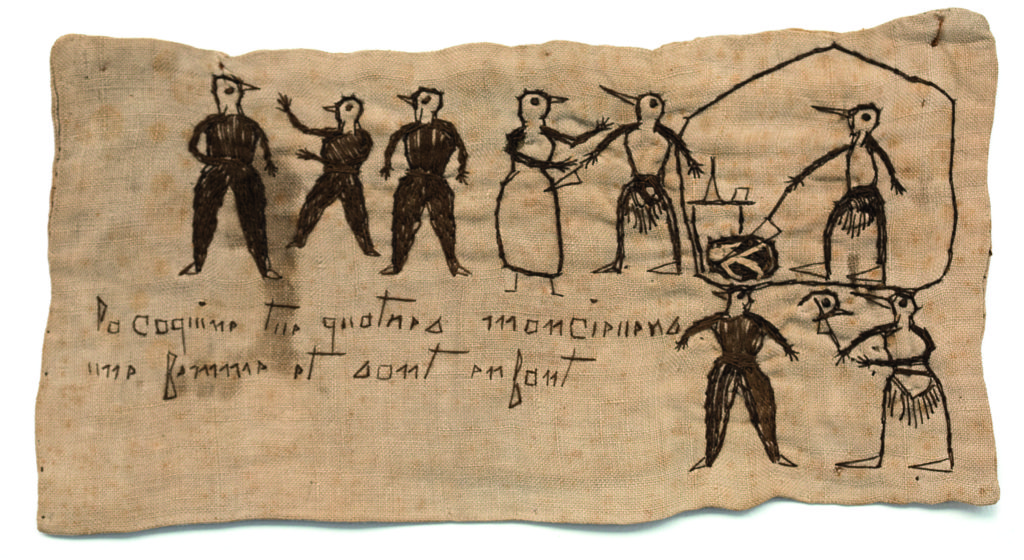 la coquine tue quatres moncieurs
une femme et sont enfant